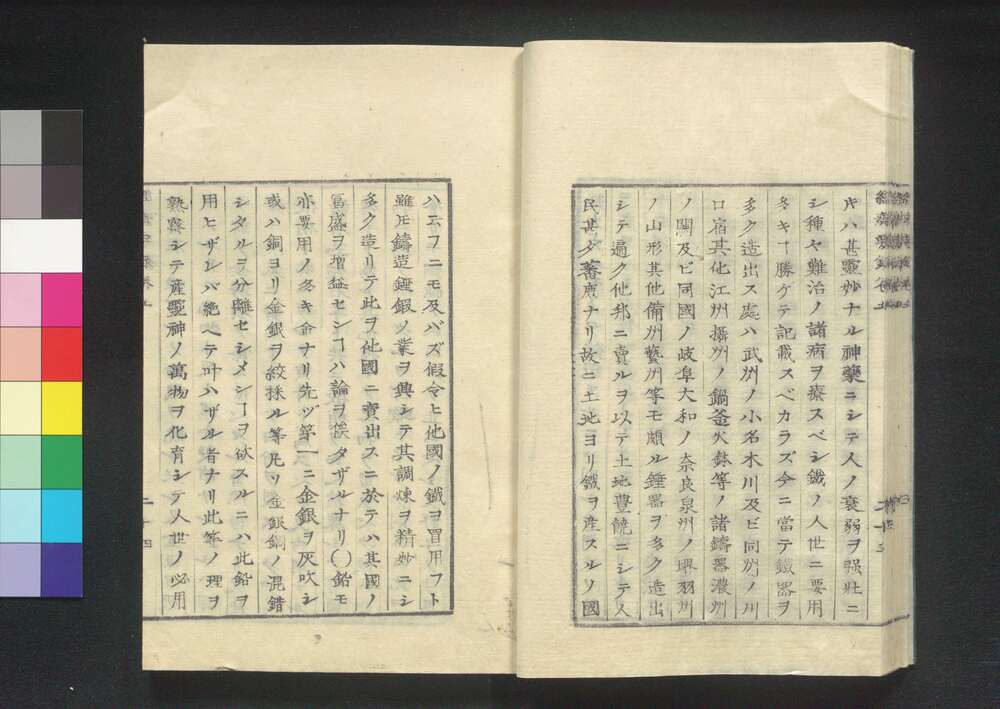 ｷハ甚靈妙ナル神藥ニシテ人ノ衰弱ヲ强壯ニ
シ種々難治ノ諸病ヲ療スベシ鐵ノ人世ニ要用
多キヿ勝ゲテ記載スベカラズ今ニ當テ鐵器ヲ
多ク造出ス處ハ武州ノ小名木川及ビ同州ノ川
口宿其他江州攝州ノ鍋釜火鉢等ノ諸鑄器濃州
ノ關及ビ同國ノ岐阜大和ノ奈良泉州ノ堺羽州
ノ山形其他備州藝州等モ頗ル錘器ヲ多ク造出
シテ遍ク他邦ニ賣ルヲ以テ土地豊饒ニシテ人
民甚ダ蕃庶ナリ故ニ土地ヨリ鐵ヲ産スルノ國
ハ云フニモ及バズ假令ヒ他國ノ鐵ヲ買用フト
雖ﾓ鑄造鍾鍛ノ業ヲ興シテ其調煉ヲ精妙ニシ
多ク造リテ此ヲ他國ニ賣出スニ於テハ其國ノ
冨盛ヲ増益セシヿハ論ヲ俟タザルナリ()鉛モ
亦要用ノ多キ金ナリ先ヅ第一ニ金銀ヲ灰吹シ
或ハ銅ヨリ金銀ヲ絞採ル等凡ソ金銀銅ノ混錯
シタルヲ分離セシメンヿヲ欲スルニハ此鉛ヲ
用ヒザレバ絶ヘテ叶ハザル者ナリ此等ノ理ヲ
熟察シテ産靈神ノ萬物ヲ化育シテ人世ノ必用